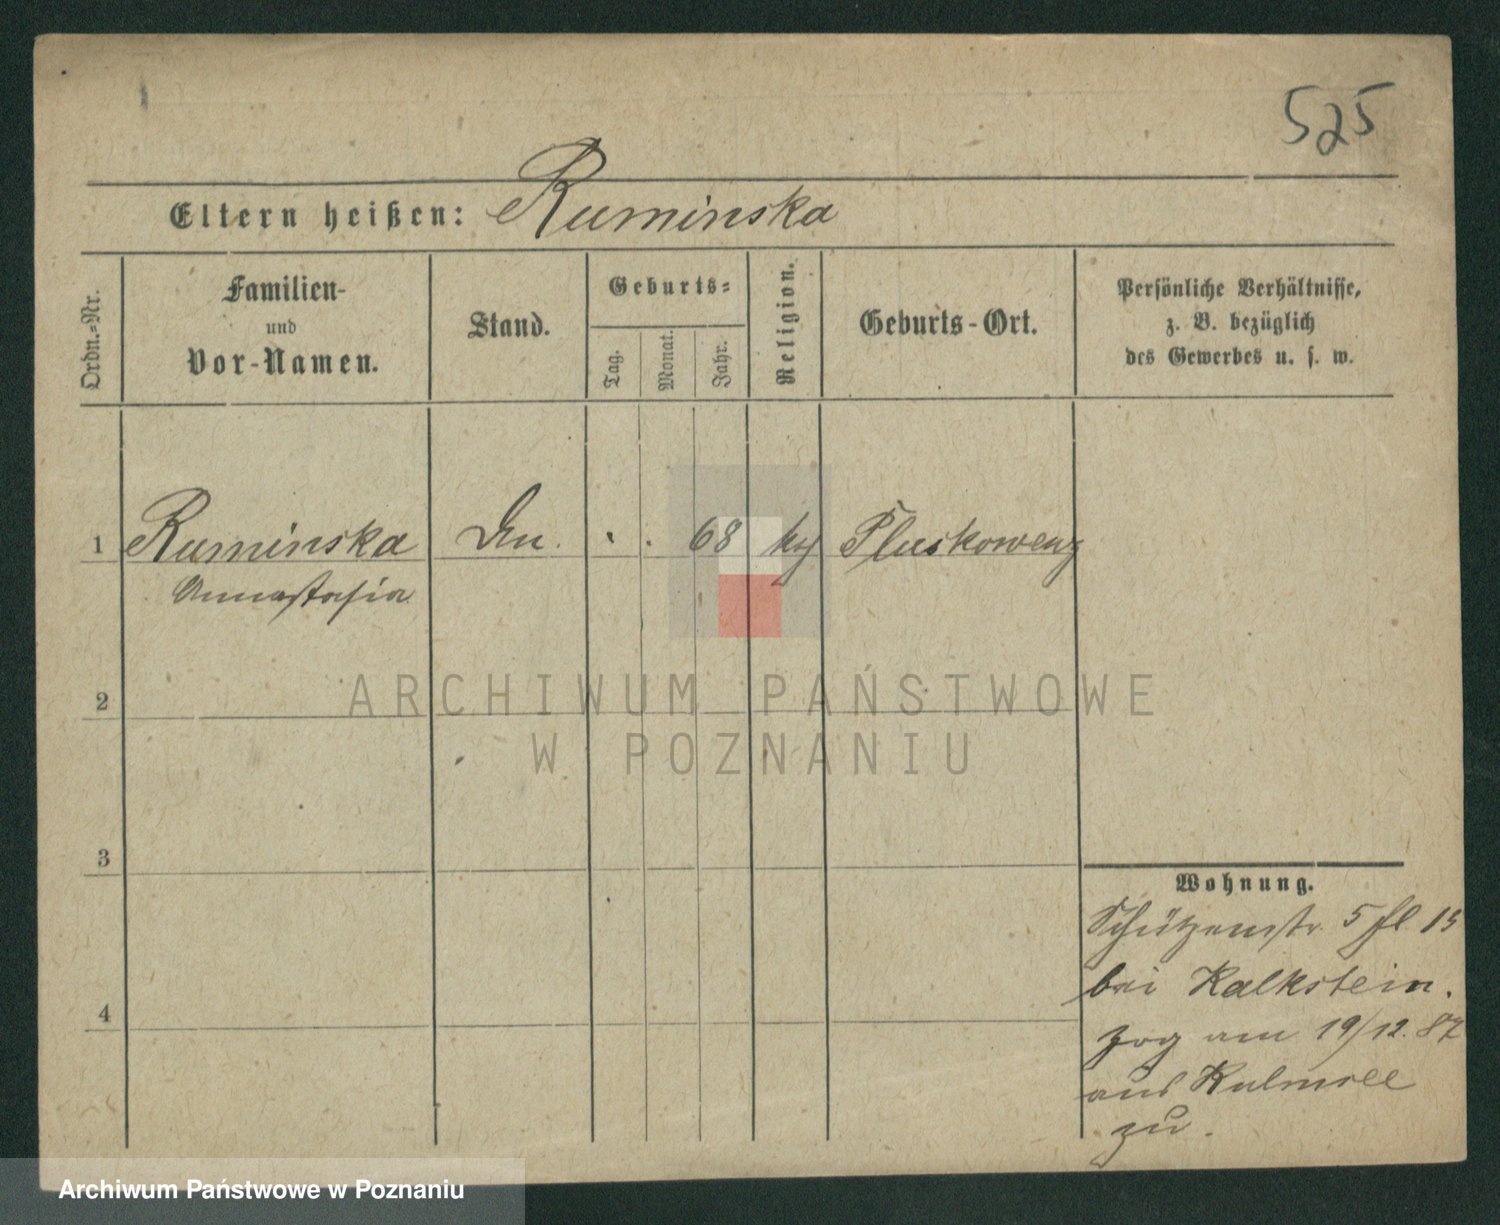 525
Eltern heißen: Ruminska
Ordn.-Nr.
Familien-
und
Vor-Namen.
Stand.
Geburts-
Tag.
Monat.
Jahr.
Religion.
Geburts-Ort.
Persönliche Verhältnisse,
z. B. bezüglich
des Gewerbes u. s. w.
1 Ruminska . . 68 Pluskowenz
Annastasia
2
3
4
Wohnung.
Schützenstr. 5
bei Kalkstein.
zog am 19/12. 87
aus Kulmsee
zu.
ARCHIWUM PAŃSTWOWE
W POZNANIU
Archiwum Państwowe w Poznaniu